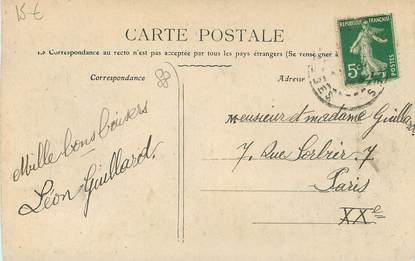 15 €
CARTE POSTALE
La Correspondance au recto n'est pas acceptée par tous les pays étrangers (Se renseigner à
Correspondance
Adresse
REPUBLIQUE FRANÇAISE
5c
POSTES
Mille bons baisers
Léon Guillard.
Monsieur et madame Guillard
7. Rue Sorbier. 7
Paris
XXe